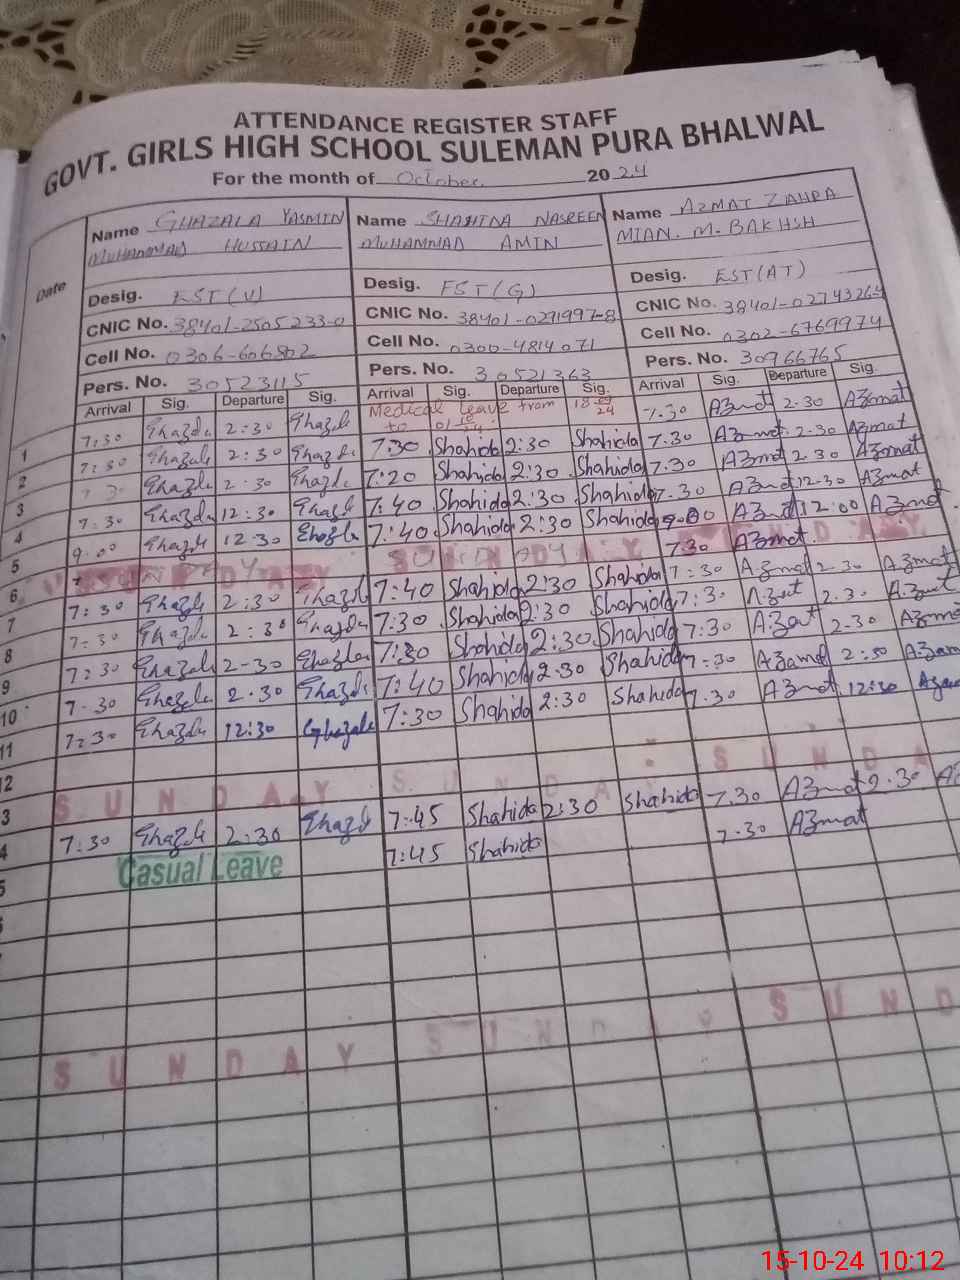 ATTENDANCE REGISTER STAFF
GOVT. GIRLS HIGH SCHOOL SULEMAN PURA BHALWAL
For the month of October 2024
Date
Name GHAZALA YASMIN
MUHAMMAD HUSSAIN
Desig. EST(V)
CNIC No. 38401-2505233-0
Cell No. 0306-606802
Pers. No. 30523115
Arrival Sig. Departure Sig.
Name SHAHINA NASREEN
MUHAMMAD AMIN
Desig. EST(G)
CNIC No. 38401-0291997-8
Cell No. 0300-4814071
Pers. No. 30521363
Arrival Sig. Departure Sig.
Name AZMAT ZAHRA
MIAN. M. BAKHSH
Desig. EST(AT)
CNIC No. 38401-0274326-4
Cell No. 0302-6769974
Pers. No. 30966765
Arrival Sig. Departure Sig.
1 7:30 Ghazala 2:30 Ghazala Medical leave from 18 09 24 to 01 10 24 7.30 Azmat 2.30 Azmat
2 7:30 Ghazala 2:30 Ghazala 7:30 Shahida 2:30 Shahida 7.30 Azmat 2.30 Azmat
3 Ghazala 2:30 Ghazala 7:20 Shahida 2:30 Shahida 7.30 Azmat 12.30 Azmat
4 7:30 Ghazala 12:30 Ghazala 7:40 Shahida 2:30 Shahida 7.30 Azmat 12:00 Azmat
5 9:00 Ghazala 12:30 Ghazala 7:40 Shahida 2:30 Shahida 9.00 Azmat
6 SUNDAY SUNDAY 7.30 Azmat
7 7:30 Ghazala 2:30 Ghazala 7:40 Shahida 2:30 Shahida 7:30 Azmat 2.30 Azmat
8 7:30 Ghazala 2:30 Ghazala 7:30 Shahida 2:30 Shahida 7:30 Azmat 2.30 Azmat
9 7:30 Ghazala 2-30 Ghazala 7:30 Shahida 2:30 Shahida 7:30 Azmat 2.30 Azmat
10 7.30 Ghazala 2.30 Ghazala 7:40 Shahida 2.30 Shahida 7:30 Azmat 2:30 Azmat
11 7:30 Ghazala 12:30 Ghazala 7:30 Shahida 2:30 Shahida 7.30 Azmat 12:30 Azmat
12
SUNDAY SUNDAY SUNDA
3 7:30 Ghazala 2:30 Ghazala 7:45 Shahida 2:30 Shahida 7.30 Azmat 2.30
4 Casual Leave 7:45 Shahida 7.30 Azmat
5
SUNDAY SUNDAY SUND
15-10-24 10:12